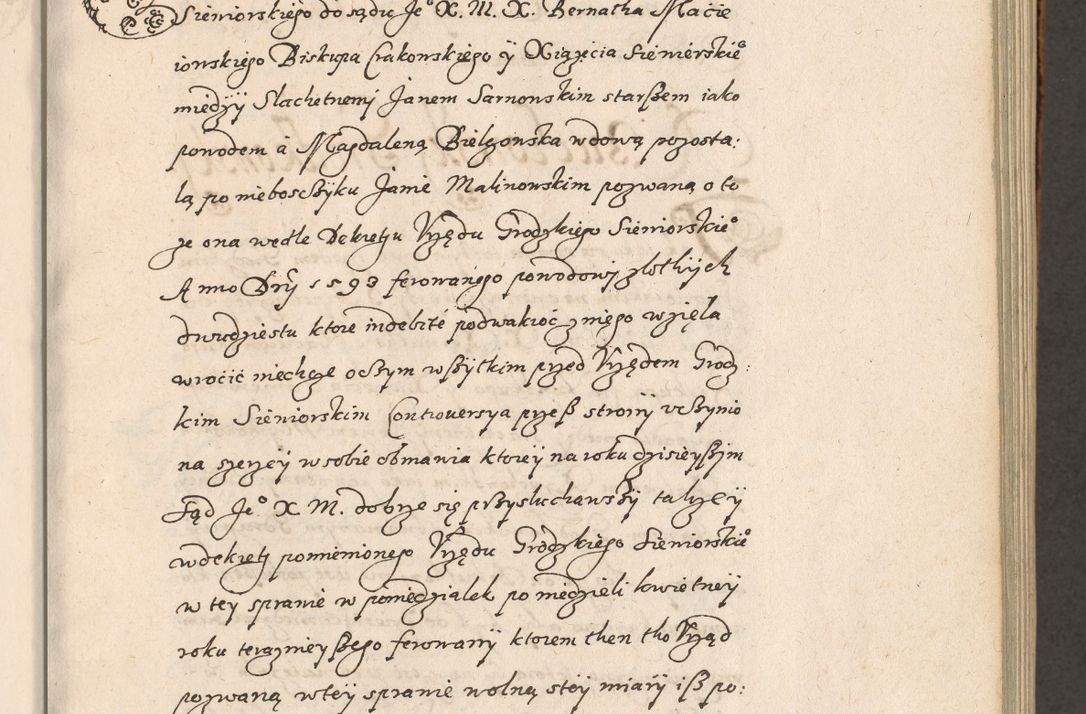 Sieniorskiego do sądu Je° X. M. X. Bernatha Macie
iowskiego Biskupa Crakowskiego ÿ Xiązęcia Siewierskie°
międzÿ Slachetnemj Janem Sarnowskim starßem iako
powodem á Magdaleną Bielzowska wdową pozosta:
łą po nieboszczÿku Janie Malinowskim pozwaną o to
ze ona wedle Dekretu Vrzędu Grodzkiego Sieniorskie°
Anno Dnÿ 1593 ferowanego powodowj zlothÿch
dwudziestu ktore indebité podwakroć z niego wzięla
wrocić niechęze oczym wßÿtkim przed Vrzędem Grodz:
kim Sieniorskim Controversya przeß stronÿ vczynio
na szerzeÿ w sobie obmawia ktoreÿ na roku dzisieyßÿm
Sąd Je° X. M. dobrze się przysłuchawßÿ takzeÿ
w dekretj pomienionego Vrzędu Grodzkiego Sieniorskie°
w teÿ sprawie w poniedzialek po niedzieli kwietneÿ
roku terazniey ßego ferowanÿ ktorem then tho Vrząd
pozwaną w teÿ sprawie wolną stoÿ miarÿ iß po: